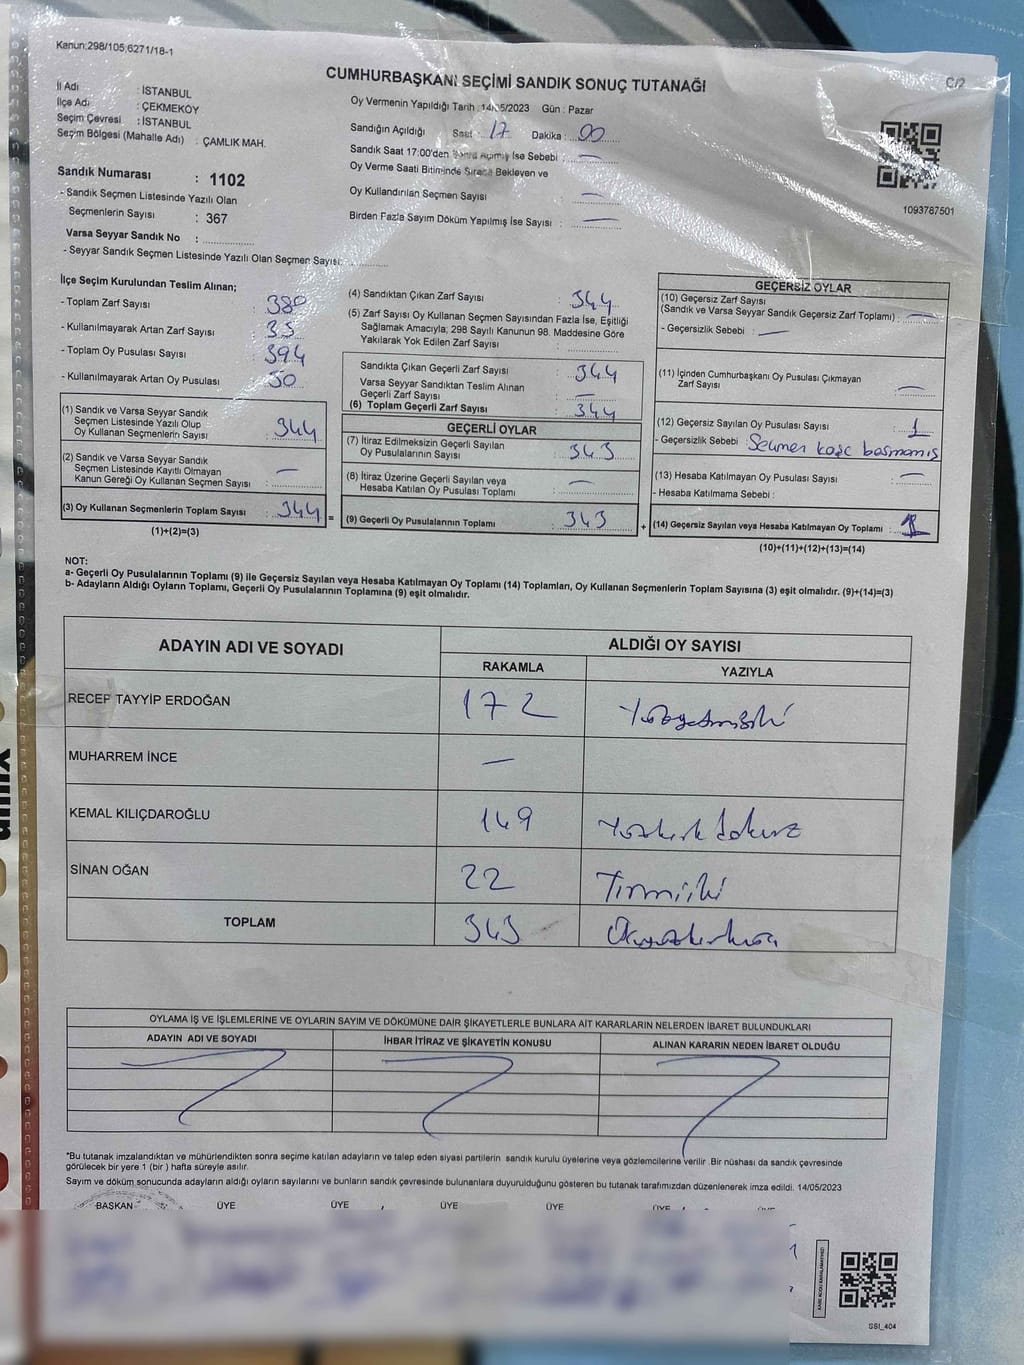 Kanun:298/105;6271/18-1
C/2
CUMHURBAŞKANI SEÇİMİ SANDIK SONUÇ TUTANAĞI
İl Adı : İSTANBUL
İlçe Adı : ÇEKMEKÖY
Seçim Çevresi : İSTANBUL
Seçim Bölgesi (Mahalle Adı) : ÇAMLIK MAH.
Sandık Numarası : 1102
- Sandık Seçmen Listesinde Yazılı Olan
Seçmenlerin Sayısı : 367
Varsa Seyyar Sandık No :
- Seyyar Sandık Seçmen Listesinde Yazılı Olan Seçmen Sayısı:
Oy Vermenin Yapıldığı Tarih :14/05/2023 Gün : Pazar
Sandığın Açıldığı Saat : 17 Dakika : 00
Sandık Saat 17:00'den Sonra Açılmış İse Sebebi : —
Oy Verme Saati Bitiminde Sırada Bekleyen ve
Oy Kullandırılan Seçmen Sayısı : —
Birden Fazla Sayım Döküm Yapılmış İse Sayısı : —
1093787501
İlçe Seçim Kurulundan Teslim Alınan;
- Toplam Zarf Sayısı : 380
- Kullanılmayarak Artan Zarf Sayısı : 35
- Toplam Oy Pusulası Sayısı : 394
- Kullanılmayarak Artan Oy Pusulası : 50
(1) Sandık ve Varsa Seyyar Sandık
Seçmen Listesinde Yazılı Olup
Oy Kullanan Seçmenlerin Sayısı : 344
(2) Sandık ve Varsa Seyyar Sandık
Seçmen Listesinde Kayıtlı Olmayan
Kanun Gereği Oy Kullanan Seçmen Sayısı : —
(3) Oy Kullanan Seçmenlerin Toplam Sayısı : 344 =
(1)+(2)=(3)
(4) Sandıktan Çıkan Zarf Sayısı : 344
(5) Zarf Sayısı Oy Kullanan Seçmen Sayısından Fazla İse, Eşitliği
Sağlamak Amacıyla; 298 Sayılı Kanunun 98. Maddesine Göre
Yakılarak Yok Edilen Zarf Sayısı :
Sandıkta Çıkan Geçerli Zarf Sayısı : 344
Varsa Seyyar Sandıktan Teslim Alınan
Geçerli Zarf Sayısı : —
(6) Toplam Geçerli Zarf Sayısı : 344
GEÇERLİ OYLAR
(7) İtiraz Edilmeksizin Geçerli Sayılan
Oy Pusulalarının Sayısı : 343
(8) İtiraz Üzerine Geçerli Sayılan veya
Hesaba Katılan Oy Pusulası Toplamı : —
(9) Geçerli Oy Pusulalarının Toplamı : 343 +
GEÇERSİZ OYLAR
(10) Geçersiz Zarf Sayısı
(Sandık ve Varsa Seyyar Sandık Geçersiz Zarf Toplamı) : —
- Geçersizlik Sebebi : —
(11) İçinden Cumhurbaşkanı Oy Pusulası Çıkmayan
Zarf Sayısı : —
(12) Geçersiz Sayılan Oy Pusulası Sayısı : 1
- Geçersizlik Sebebi : Seçmen kaşe basmamış
(13) Hesaba Katılmayan Oy Pusulası Sayısı : —
- Hesaba Katılmama Sebebi :
(14) Geçersiz Sayılan veya Hesaba Katılmayan Oy Toplamı : 1
(10)+(11)+(12)+(13)=(14)
NOT:
a- Geçerli Oy Pusulalarının Toplamı (9) ile Geçersiz Sayılan veya Hesaba Katılmayan Oy Toplamı (14) Toplamları, Oy Kullanan Seçmenlerin Toplam Sayısına (3) eşit olmalıdır. (9)+(14)=(3)
b- Adayların Aldığı Oyların Toplamı, Geçerli Oy Pusulalarının Toplamına (9) eşit olmalıdır.
ADAYIN ADI VE SOYADI ALDIĞI OY SAYISI
RAKAMLA YAZIYLA
RECEP TAYYİP ERDOĞAN 172 Yüzyetmişiki
MUHARREM İNCE —
KEMAL KILIÇDAROĞLU 149 Yüzkırk dokuz
SİNAN OĞAN 22 Yirmiiki
TOPLAM 343 Üçyüzkırküç
OYLAMA İŞ VE İŞLEMLERİNE VE OYLARIN SAYIM VE DÖKÜMÜNE DAİR ŞİKAYETLERLE BUNLARA AİT KARARLARIN NELERDEN İBARET BULUNDUKLARI
ADAYIN ADI VE SOYADI İHBAR İTİRAZ VE ŞİKAYETİN KONUSU ALINAN KARARIN NEDEN İBARET OLDUĞU
*Bu tutanak imzalandıktan ve mühürlendikten sonra seçime katılan adayların ve talep eden siyasi partilerin sandık kurulu üyelerine veya gözlemcilerine verilir .Bir nüshası da sandık çevresinde
görülecek bir yere 1 (bir ) hafta süreyle asılır.
Sayım ve döküm sonucunda adayların aldığı oyların sayılarını ve bunların sandık çevresinde bulunanlara duyurulduğunu gösteren bu tutanak tarafımızdan düzenlenerek imza edildi. 14/05/2023
BAŞKAN ÜYE ÜYE ÜYE ÜYE ÜYE ÜYE
SSI_404